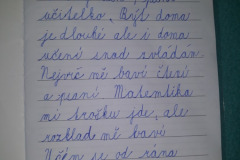 učitelko. Být doma
je dlouhé ale i doma
učení snad zvládám.
Nejvíc mě baví čtení
a psaní Matemtika
mi trošku jde, ale
rozklad mě baví
se od rána